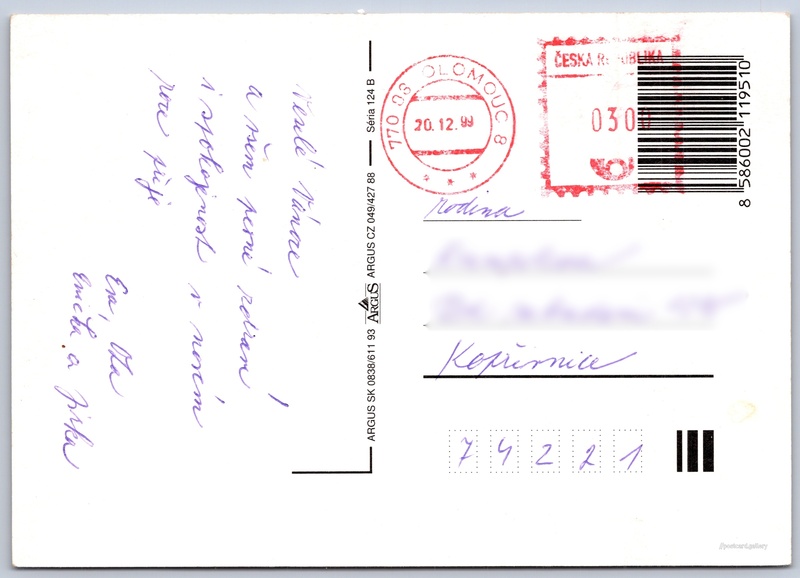 Veselé Vánoce
a všem pevné zdraví !
i spokojenost v novém
roce přeje
Eva, Ota
Emička a Jirka
ARGUS SK 0838/611 93 ARGUS ARGUS CZ 049/427 88 Séria 124 B
770 08 OLOMOUC 8
20.12.99
ČESKÁ REPUBLIKA
0300
8 586002 119510
rodina
Kopřivnice
74221
postcard.gallery